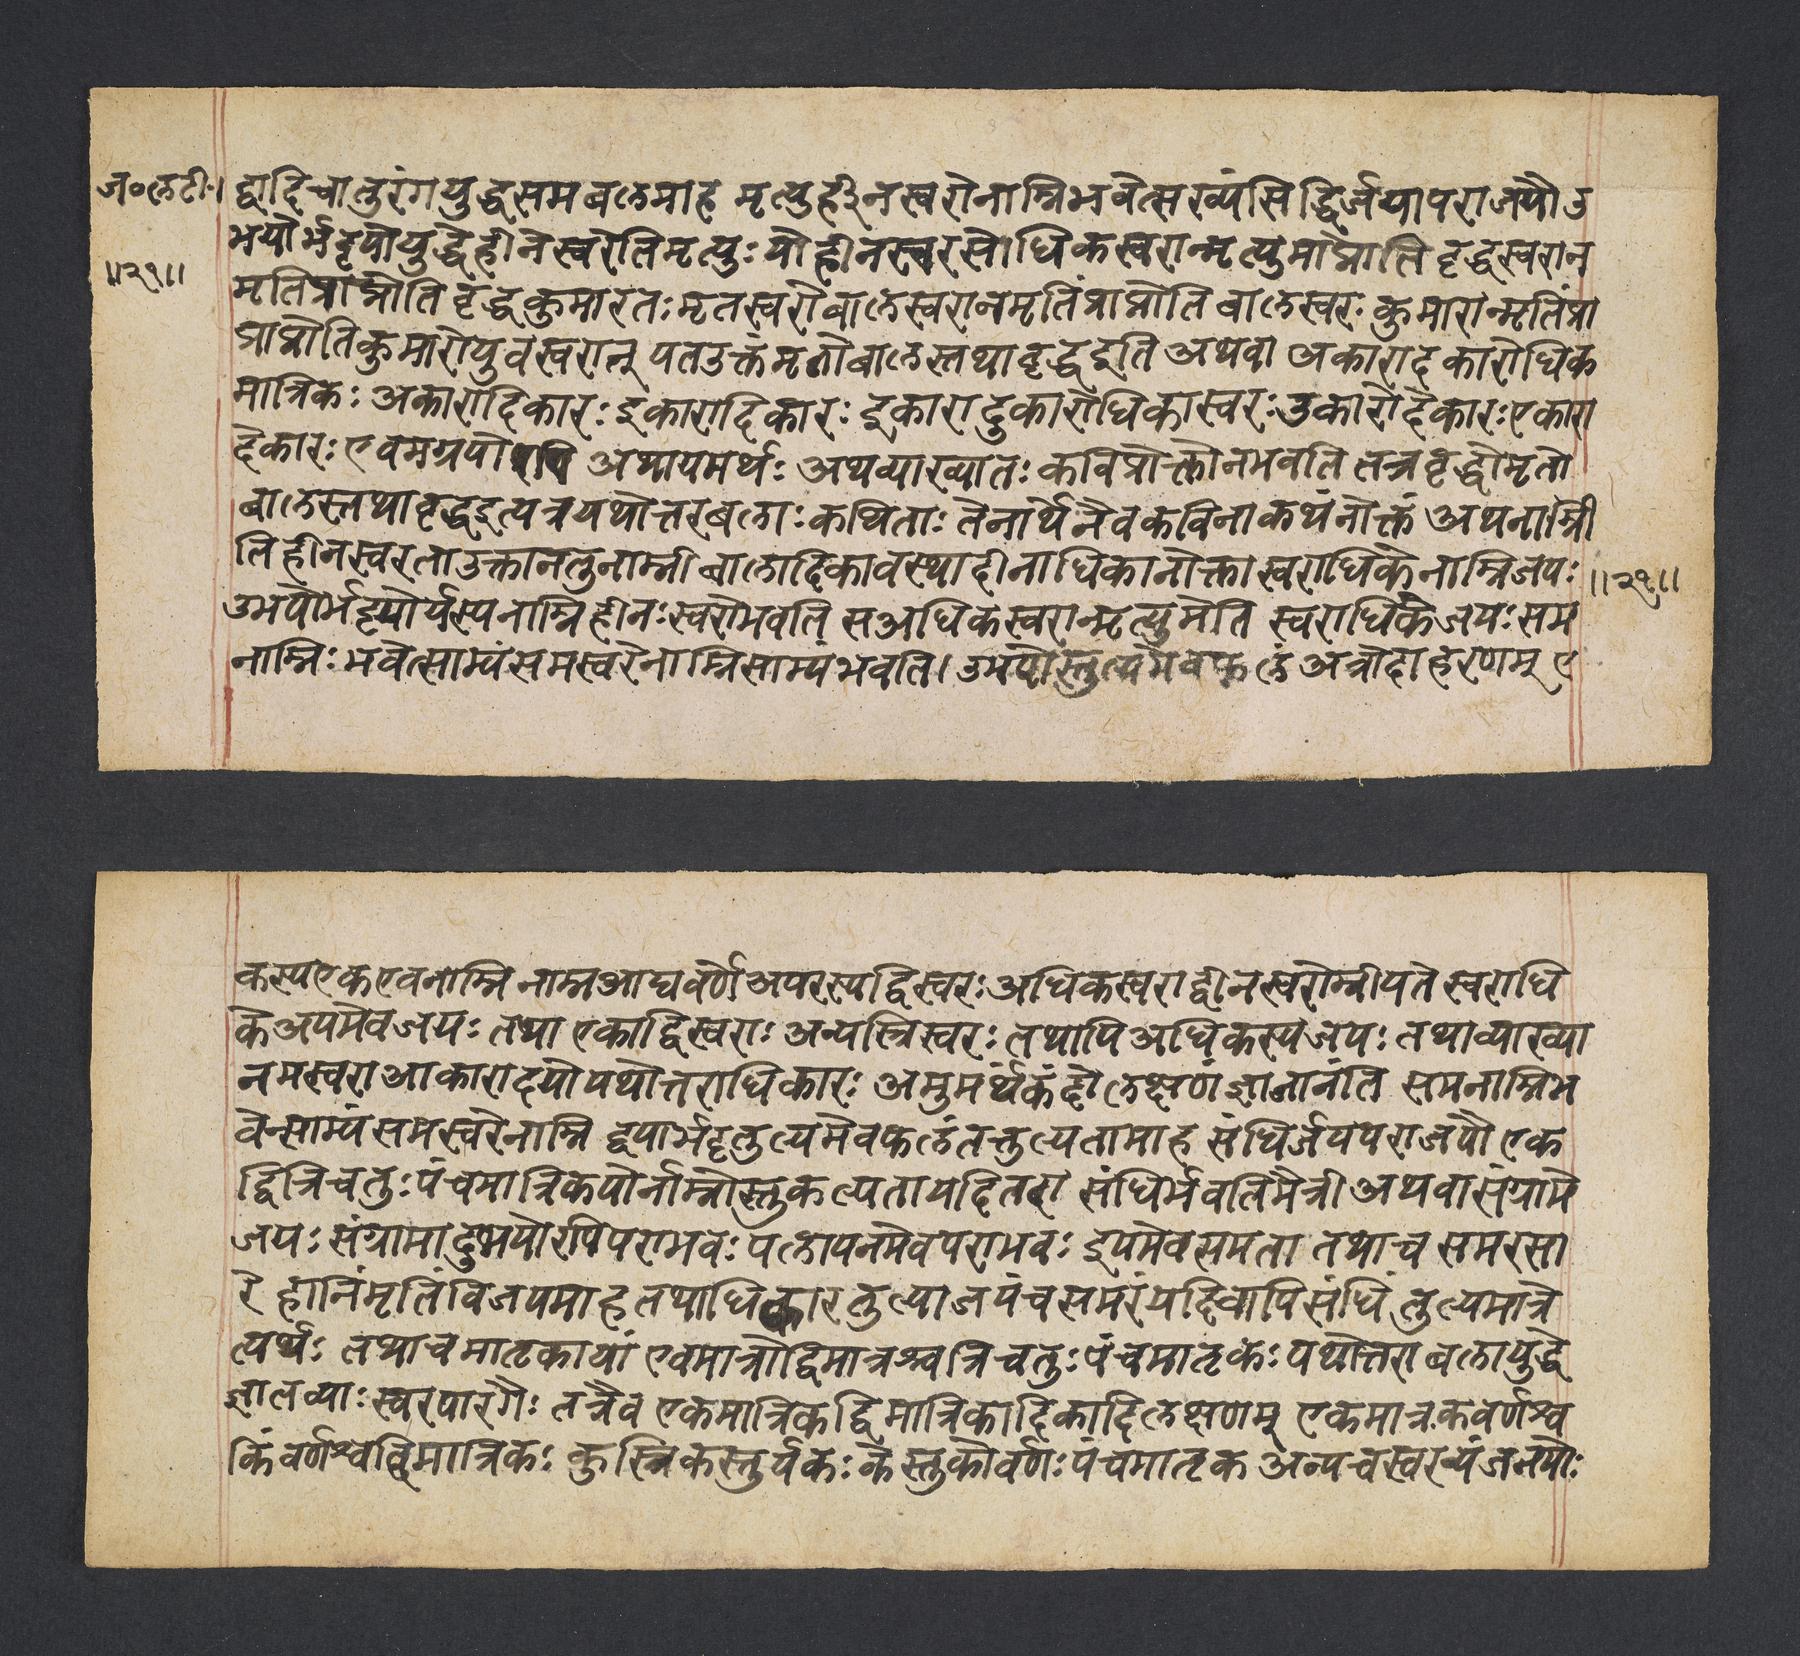 ज०लटी.। द्वादिचातुरंगयुद्धसमबलमाह मृत्युर्हीनस्वरोनाम्निभवेत्सख्यंसिद्धिर्जयापराजयौउ
भयोर्भदृयोयुद्धेहीनस्वरोतिमृत्युः योहीनस्वरसोधिकस्वरान्मृत्युमाप्नोति वृद्धस्वरान
॥२९॥
मृतिप्राप्नोति वृद्धकुमारतः मृतस्वरोबालस्वरानमृतिंप्राप्नोति बालस्वरः कुमारान्मृतिंप्रा
प्राप्नोतिकुमारोयुवस्वरान् यतउक्तंमृतोबालस्तथावृद्धइति अथवा अकारादकारोधिक
मात्रिकः अकारादिकारः इकारादिकारः इकारादुकारोधिकास्वरः उकारोदेकारः एकारा
देकारः एवमग्रयोरपि अथायमर्थः अथव्याख्यातः कविप्रोक्तोनभवति तत्रवृद्धोमृतो
बालस्तथावृद्धइत्यत्रयथोत्तरबलाः कथिताः तेनार्थेनैवकविनाकथंनोक्तं अथनाम्नी
तिहीनस्वरताउक्तानतुनाम्नी बालादिकावस्थाहीनाधिकानोक्ता स्वराधिकेनाम्निजयः
॥२९॥
उभयोर्भदृयोर्यस्यनाम्निहीनः स्वरोभवति सअधिकस्वरान्मृत्युमेति स्वराधिकेजयः सम
नाम्निः भवेत्साम्यंसमस्वरेनाम्निसाम्यंभवति। उभयोस्तुल्यमेवफलं अत्रोदाहरणम् ए
कस्यएकएवनाम्नि नाम्नआद्यवर्णे अपरस्यद्विस्वरः अधिकस्वराद्धीनस्वरोम्रीयते स्वराधि
के अयमेवजयः तथा एकाद्विस्वराः अन्यस्त्रिस्वरः तथापि अधिकस्यजयः तथाव्याख्या
नमस्वरा आकारादयोयथोत्तराधिकारः अमुमर्थकंद्दोलक्षणंज्ञानानंति समनाम्निभ
वेत्साम्यंसमस्वरेनाम्नि द्वयार्भदृतुल्यमेवफलंतत्तुल्यतामाह संधिर्जयपराजयौ एक
द्वित्रिचतुःपंचमात्रिकयोर्नाम्नोस्तुकल्पतायदितदा संधिर्भवतिमैत्री अथवासंग्रामे
जयः संग्रामादुभयोरपिपराभवः पलायनमेवपराभवः इयमेवसमता तथाच समरसा
रे हानिंमृतिंविजयमाहतथाधिकारतुल्याजयंचसमरंयदिवापिसंधिं तुल्यमात्रे
त्यर्थः तथाचमातृकायां एवमात्रोद्विमात्रश्चत्रिचतुःपंचमातृकः यथोत्तराबलायुद्धे
ज्ञातव्याः स्वरपारगैः तत्रैव एकमात्रिकद्विमात्रिकादिकादिलक्षणम् एकमात्रकवर्णश्च
किंवर्णश्चद्विमात्रिकः कुस्त्रिकस्तुर्यकः केस्तुकोवर्णः पंचमातृक अन्यच्चस्वरव्यंजनयोः